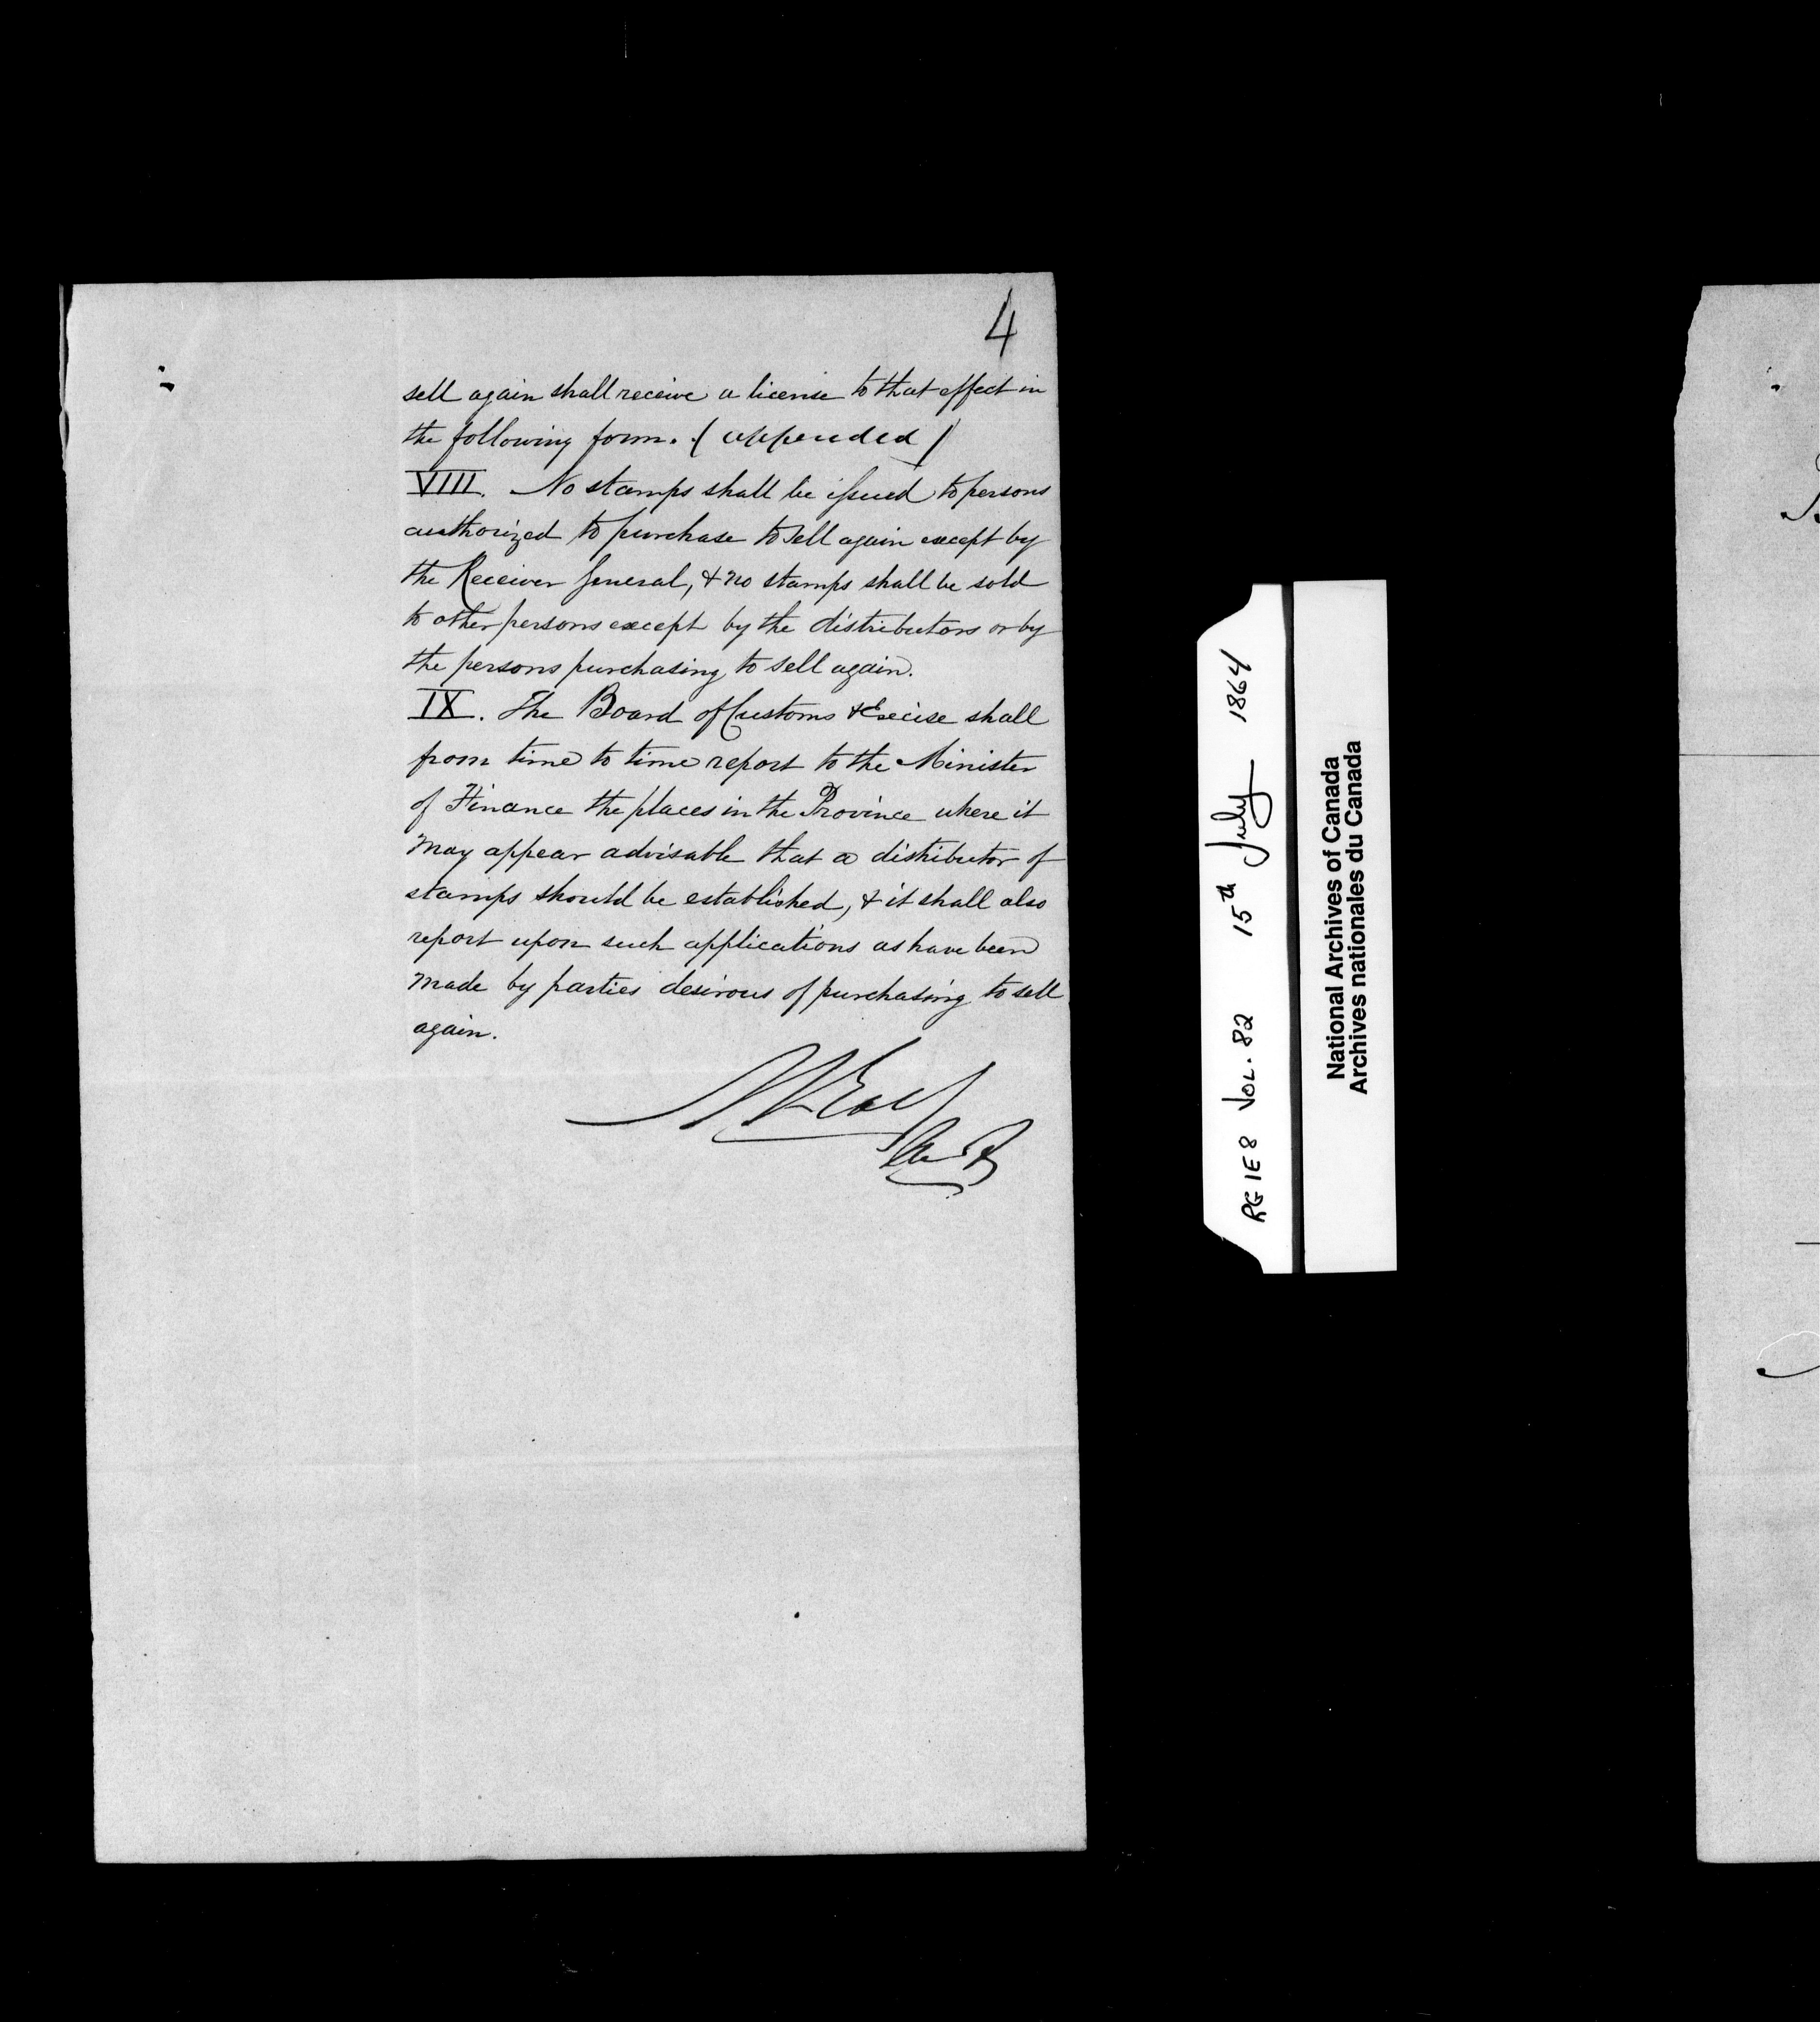 4
sell again shall receive a license to that effect in
the following form. (appended)
VIII. No stamps shall be issued to persons
authorized to purchase to sell again except by
the Receiver General, & no stamps shall be sold
to other persons except by the distributors or by
the persons purchasing to sell again.
IX. The Board of Customs & Excise shall
from time to time report to the Minister
of Finance the places in the Province where it
may appear advisable that a distributor of
stamps should be established, & it shall also
report upon such applications as have been
made by parties desirous of purchasing to sell
again.
RG 1E8 VOL. 82 15th July 1864
National Archives of Canada
Archives nationales du Canada